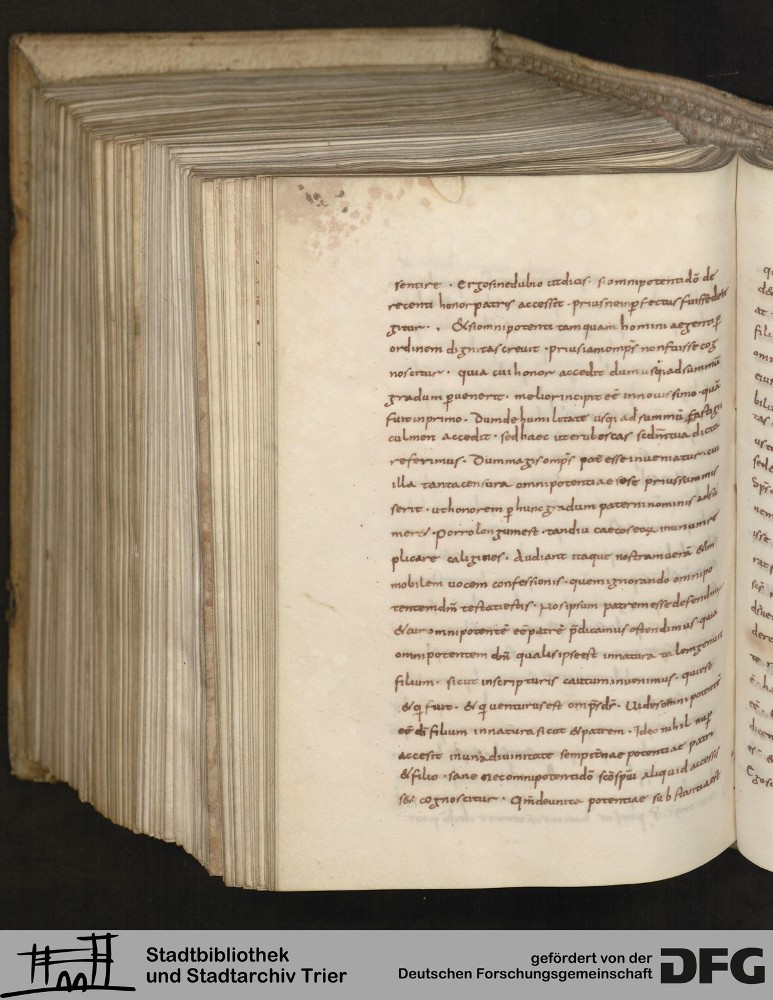 sentire · Ergo sine dubio ut dicis · si omnipotenti dō de
recenti honor patris accessit · prius nec perfectus fuisse
gitur · Et si omnipotenti tamquam homini aegenti p̄
ordinem dignitas crevit · prius iam omp̄s non fuisse cog
noscitur · quia cui honor accedit dum usq; ad summū
gradum pervenerit · melior incipit eē in novissimo · quā
fuit in primo · Dum de humilitate usq; ad summū fastigii
culmen accedit · sed haec ut erubescas secdm tua dicta
referimus · Dum magis omp̄s pat esse inveniatur · cui
illa tanta censura omnipotentiae prius
serit · ut honorem p hunc gradum paterni nominis
meret · Porro longum est · tandiu caecos eorum
plicare caligines · Audiant itaque nostram verā & im
mobilem vocem confessionis · quem ignorando omnipo
tentem dm̄ testati estis · Nos ipsum patrem esse defendim
& cur omnipotentē eē patrē p̄dicamus ostendimus · quia
omnipotentem dm̄ qualis ipse est in natura talem genuit
filium · sicut in scripturis cautum invenimus · qui est
& qi fuit · & qi venturus est omp̄s ds̄ · Vides omnipotentē
eē dī filium in natura sicut & patrem · Ideo nihil nup̄
accessit in una divinitate sempiternae potentiae patri
& filio · sane nec omnipotenti dō sc̄o sp̄ui aliquid accessis
se cognoscitur · Qm̄ de unita potentiae substantia est
Stadtbibliothek
und Stadtarchiv Trier
gefördert von der
Deutschen Forschungsgemeinschaft
DFG